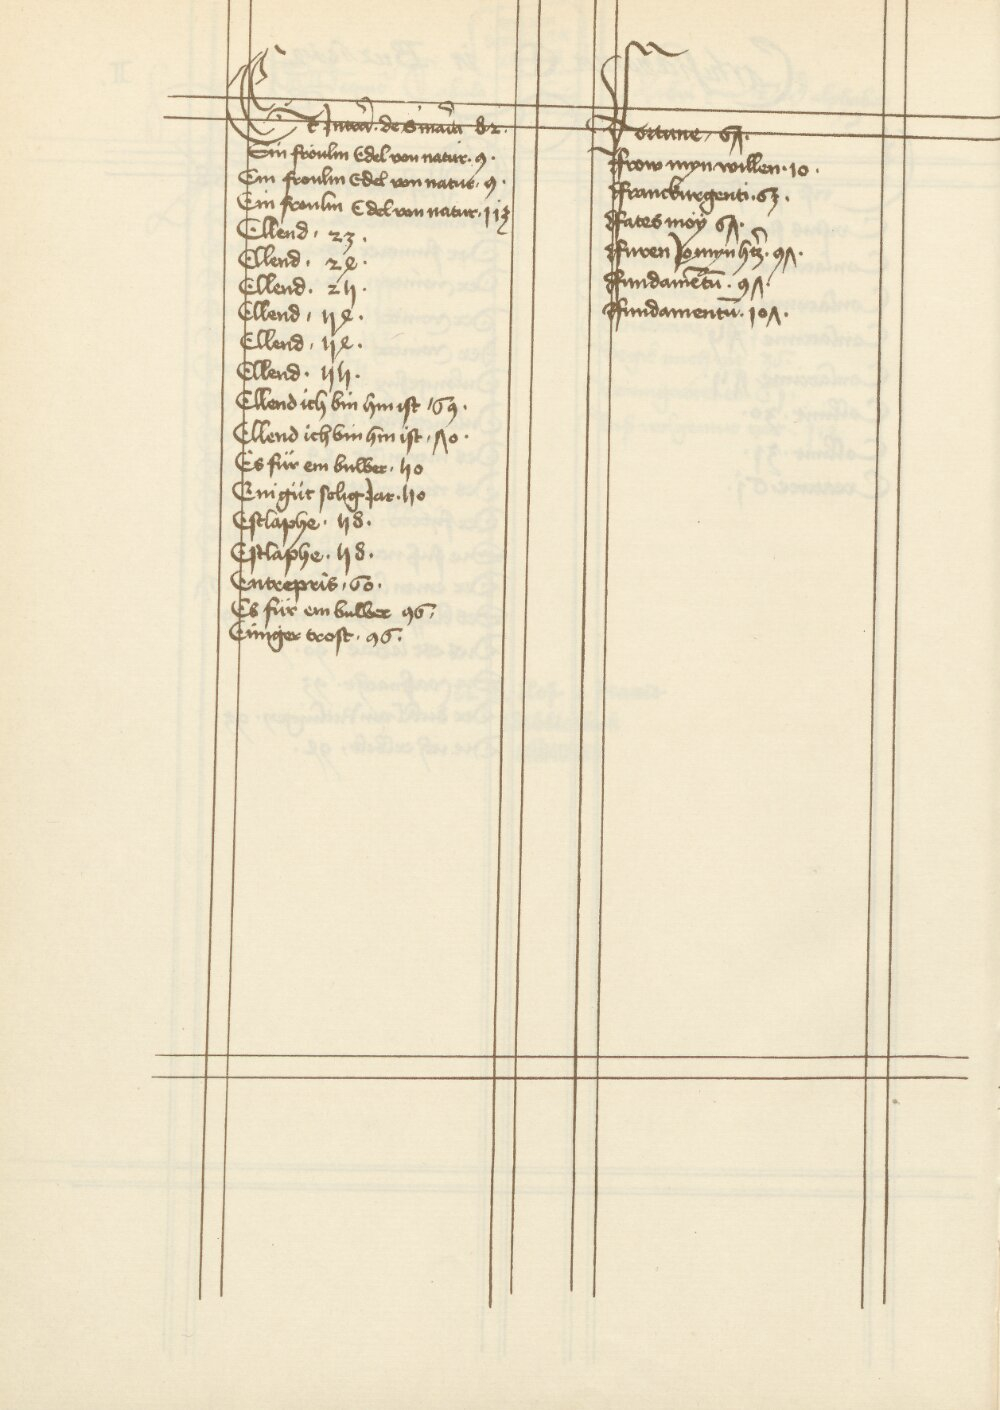 Et Intra de
Ein froulin Edel von natur. 9.
Ein froulin Edel von natur. 9.
Ein froulin Edel von natur.
Ellend. 23.
Ellend. 24.
Ellend. 25.
Ellend. 54.
Ellend. 54.
Ellend. 55.
Ellend ich bin hin ist. 69.
Ellend ich bin hin ist. 70.
Es für ein buwer. 50
Ein güt selig Jar. 50
Esclaphe. 58.
Esclaphe. 58.
Entrepris. 60.
Es für ein buwer 96.
Einiger trost. 96.
Fortune. 67.
Frow myn willen. 10.
Franckurgenti. 63.
Fates moy 67.
Furen Jo myn htz. 97.
Fundamētū. 97.
Fundamentū. 107.